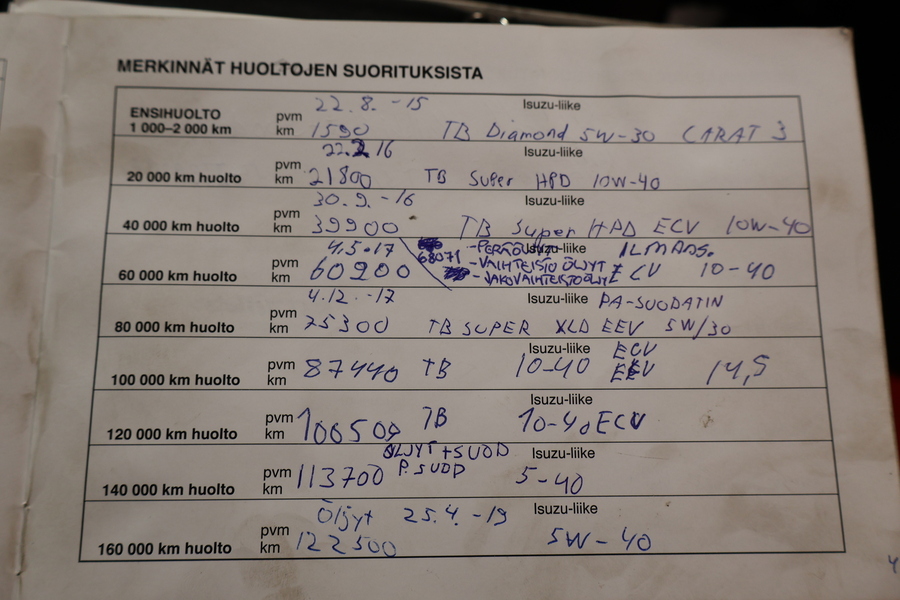 MERKINNÄT HUOLTOJEN SUORITUKSISTA
ENSIHUOLTO pvm 22.8.-15 Isuzu-liike
1 000–2 000 km km 1590 TB Diamond 5W-30 CARAT 3
pvm 22.2.16 Isuzu-liike
20 000 km huolto km 21800 TB Super HPD 10W-40
pvm 30.9.-16 Isuzu-liike
40 000 km huolto km 39900 TB Super HPD ECV 10W-40
pvm 4.5.17 Isuzu-liike ILMANS.
68071 -VAIHTEISTO ÖLJYT
60 000 km huolto km 60200 -JAKOVAIHTEISTOÖLJYT ECV 10-40
pvm 4.12.-17 Isuzu-liike PA-SUODATIN
80 000 km huolto km 75300 TB SUPER XLD EEV 5W/30
pvm Isuzu-liike ECV
100 000 km huolto km 87440 TB 10-40 14,5
pvm Isuzu-liike
120 000 km huolto km 100500 TB 10-40 ECV
pvm ÖLJYT+SUOD Isuzu-liike
140 000 km huolto km 113700 P.SUOD 5-40
pvm Öljyt 25.4.-19 Isuzu-liike
160 000 km huolto km 122500 5W-40